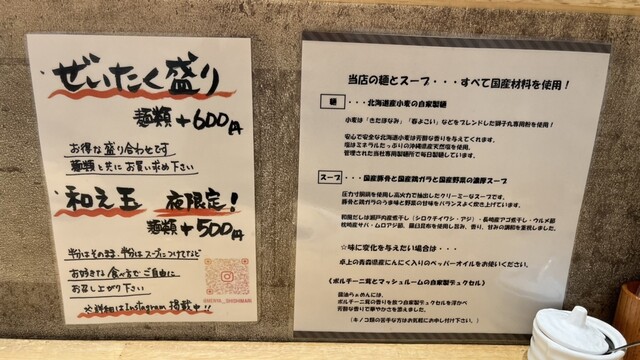 ぜいたく盛り
麺類+600円
お得な盛り合わせです
麺類と共にお買い求め下さい
和え玉 夜限定!
麺類+500円
半分はそのまま、半分はスープにつけてなど
お好きな食べ方でご自由に
お召し上がり下さい
※詳細はInstagram掲載中!!
当店の麺とスープ・・・すべて国産材料を使用!
麺 ・・・北海道産小麦の自家製麺
小麦は「きたほなみ」「春よこい」などをブレンドした獅子丸専用粉を使用!
安心で安全な北海道小麦は芳醇な香りを与えてくれます。
塩はミネラルたっぷりの沖縄県産天然塩を使用。
管理された当社専用製麺所で毎日製麺しています。
スープ ・・・国産豚骨と国産鶏ガラと国産野菜の濃厚スープ
圧力寸胴鍋を使用し高火力で抽出したクリーミーなスープです。
豚骨と鶏ガラのうま味と野菜の甘味をバランスよく炊き上げています。
和風だしは瀬戸内産煮干し(シロクチイワシ・アジ)・長崎産アゴ煮干し・ウルメ節
枕崎産サバ・ムロアジ節、羅臼昆布を使用し旨み、香り、甘みの調和を重視しました。
☆味に変化を与えたい場合は・・・
卓上の青森県産にんにく入りのペッパーオイルをお使いください。
<ポルチーニ茸とマッシュルームの自家製デュクセル>
醤油らぁめんには、
ポルチーニ茸の香りを放つ自家製デュクセルを浮かべ
芳醇な香りで華やかさを添えました。
(キノコ類の苦手な方はお気軽にお申し付け下さい。)